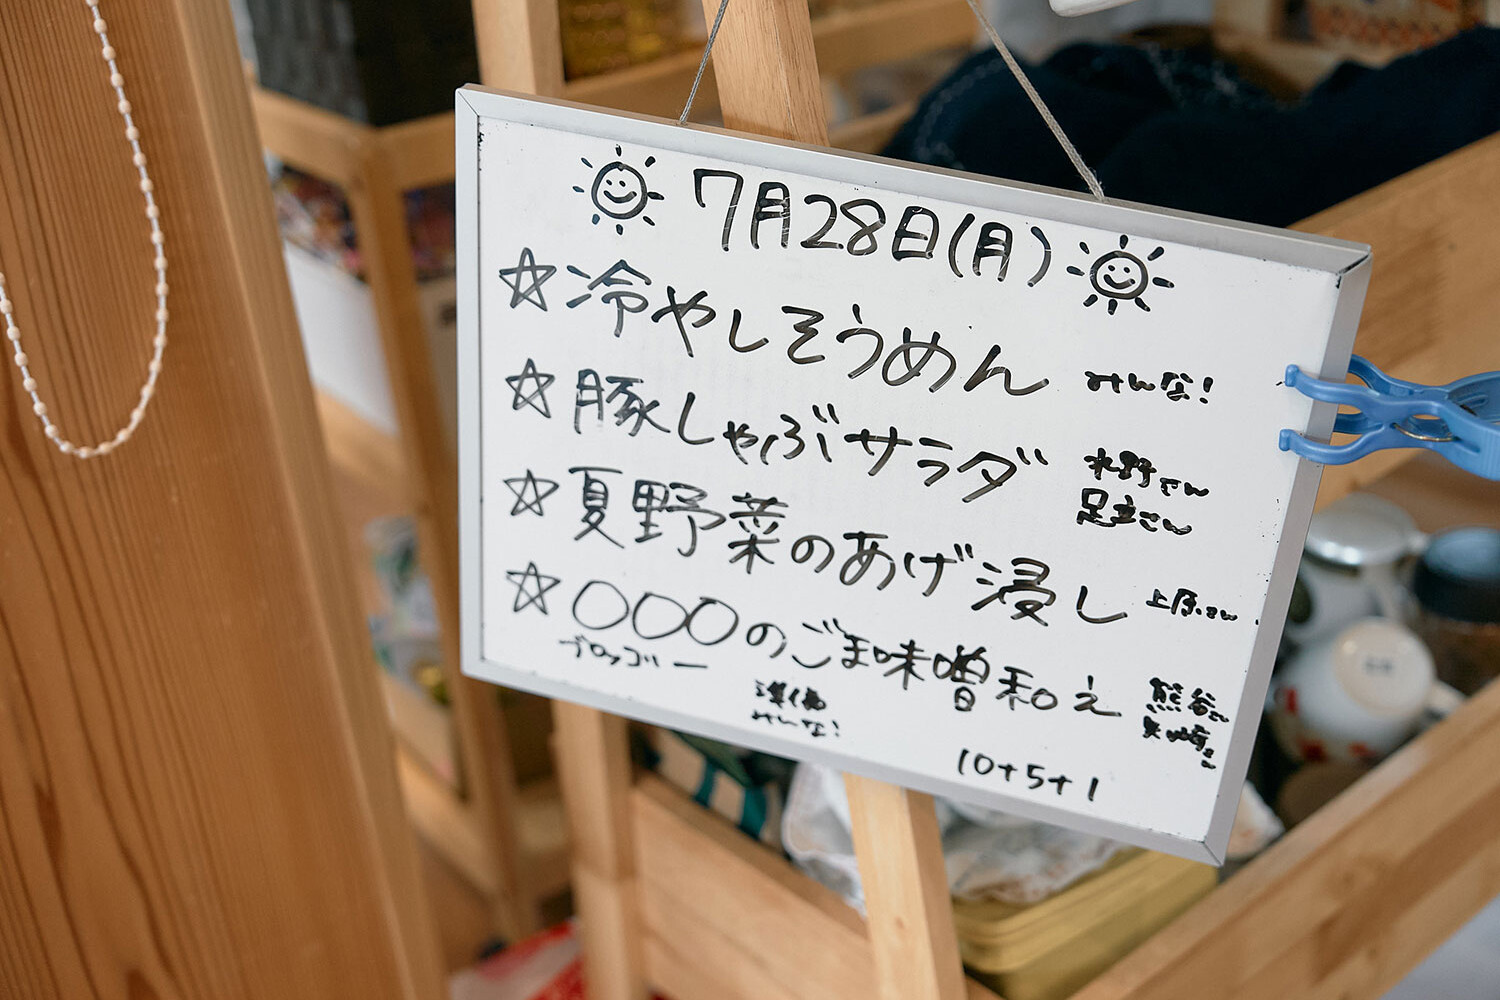 7月28日(月)
☆冷やしそうめん みんな!
☆豚しゃぶサラダ 水野さん
足立さん
☆夏野菜のあげ浸し 上原さん
☆○○○のごま味噌和え 熊谷さん
ブロッコリー 矢崎さん
準備
みんな!
10+5+1